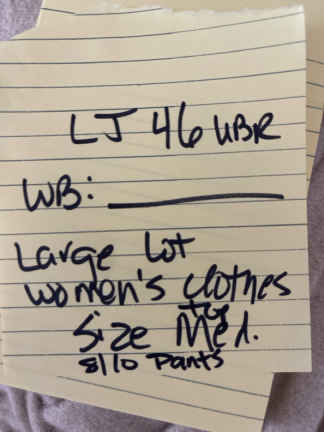 LJ 46 UBR
WB:
Large lot
women's clothes
Size Med.
8/10 Pants